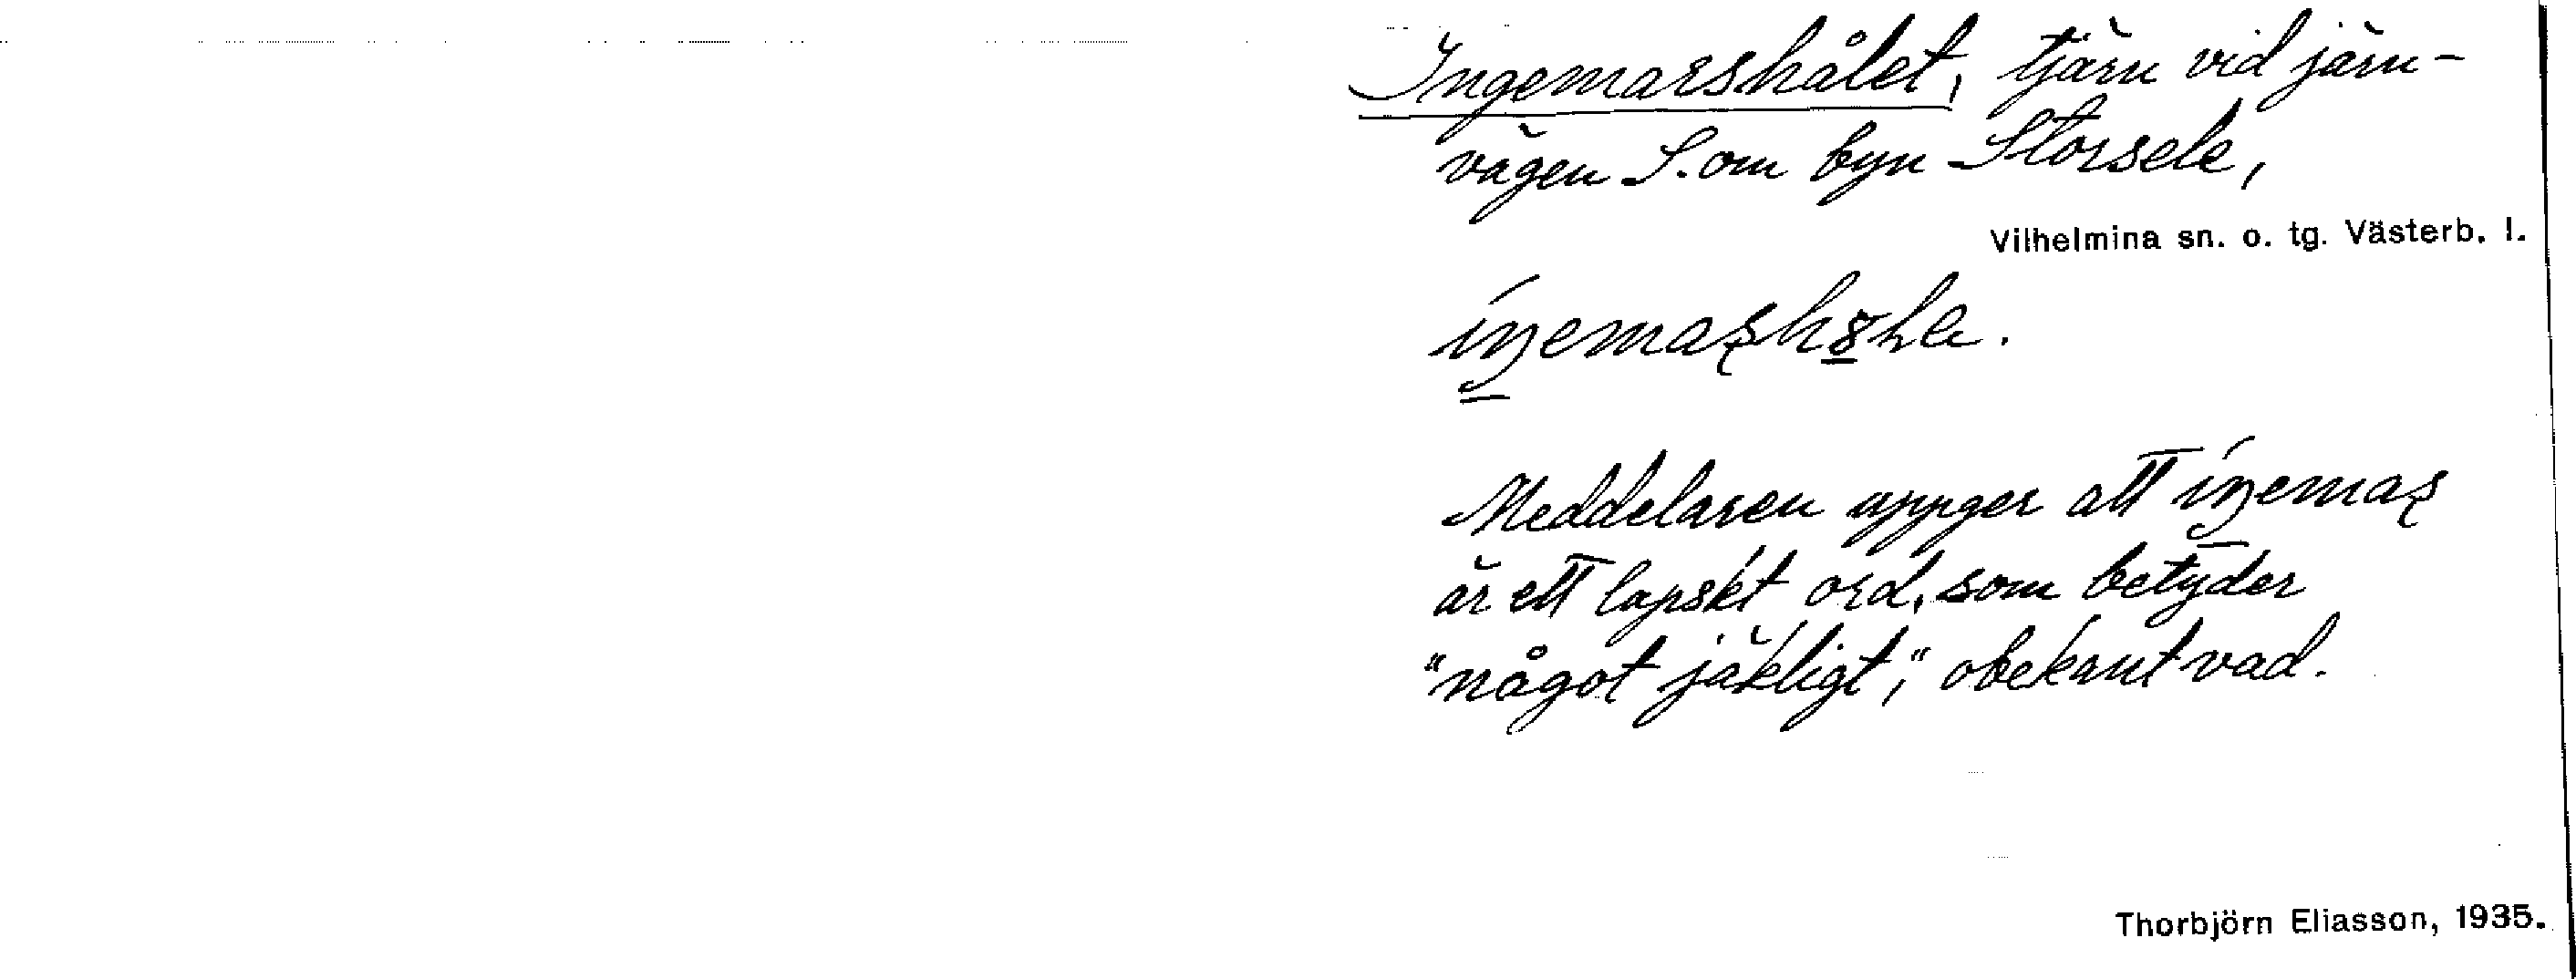 Ingemarshålet, tjärn vid järn-
vägen S. om byn Storsele,
Vilhelmina sn. o. tg. Västerb. l.
Meddelaren uppger att iŋemaʂ
är ett lapskt ord, som betyder
"något jäkligt", obekant vad.
Thorbjörn Eliasson, 1935.